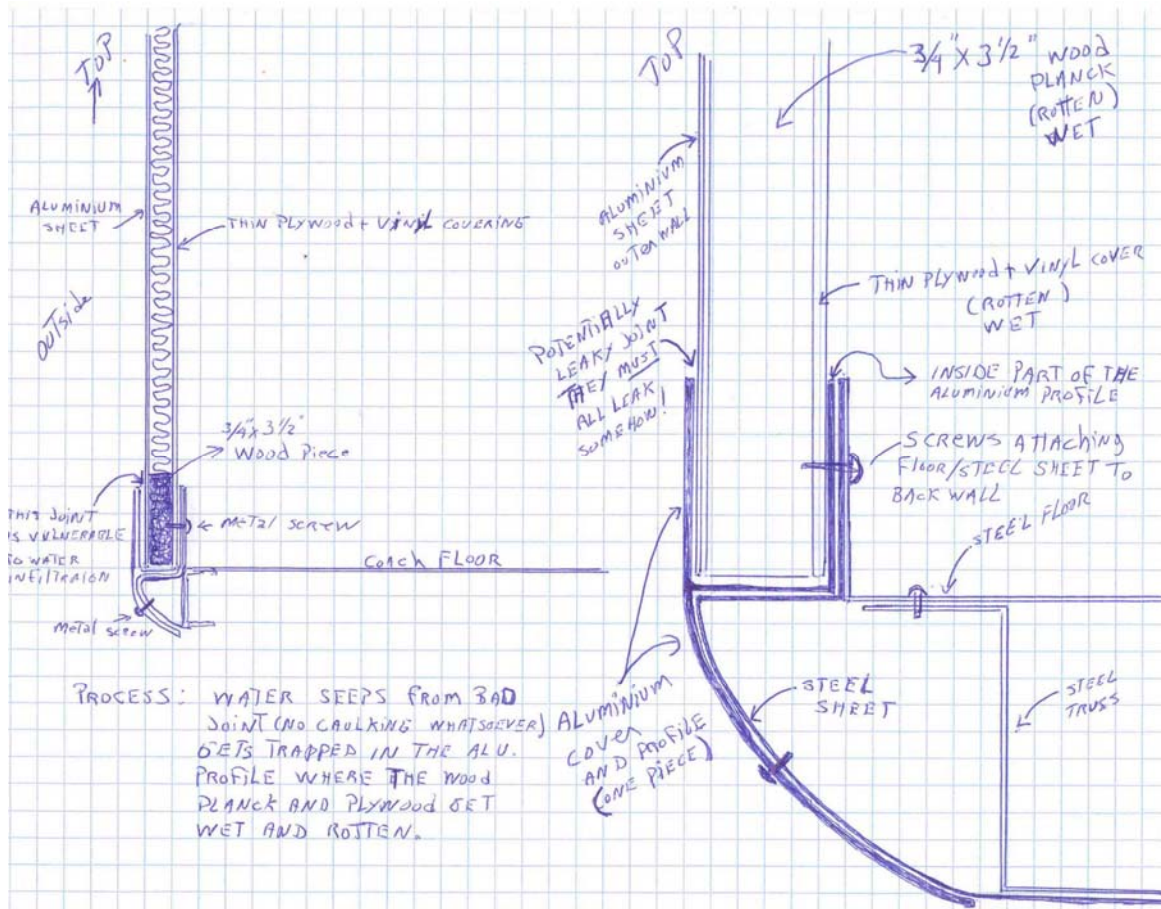 TOP
ALUMINIUM
SHEET
THIN PLYWOOD + VINYL COVERING
OUTSIDE
3/4" X 3 1/2"
WOOD PIECE
THIS JOINT
IS VULNERABLE
TO WATER
INFILTRAION
METAL SCREW
COACH FLOOR
METAL SCREW
PROCESS: WATER SEEPS FROM BAD
JOINT (NO CAULKING WHATSOEVER)
GETS TRAPPED IN THE ALU.
PROFILE WHERE THE WOOD
PLANCK AND PLYWOOD GET
WET AND ROTTEN.
TOP
3/4" X 3 1/2" WOOD
PLANCK
(ROTTEN)
WET
ALUMINIUM
SHEET
OUTER WALL
THIN PLYWOOD + VINYL COVER
(ROTTEN)
WET
POTENTIALLY
LEAKY JOINT
THEY MUST
ALL LEAK
SOMEHOW!
INSIDE PART OF THE
ALUMINIUM PROFILE
SCREWS ATTACHING
FLOOR/STEEL SHEET TO
BACK WALL
STEEL FLOOR
ALUMINIUM
COVER
AND PROFILE
(ONE PIECE)
STEEL
SHEET
STEEL
TRUSS